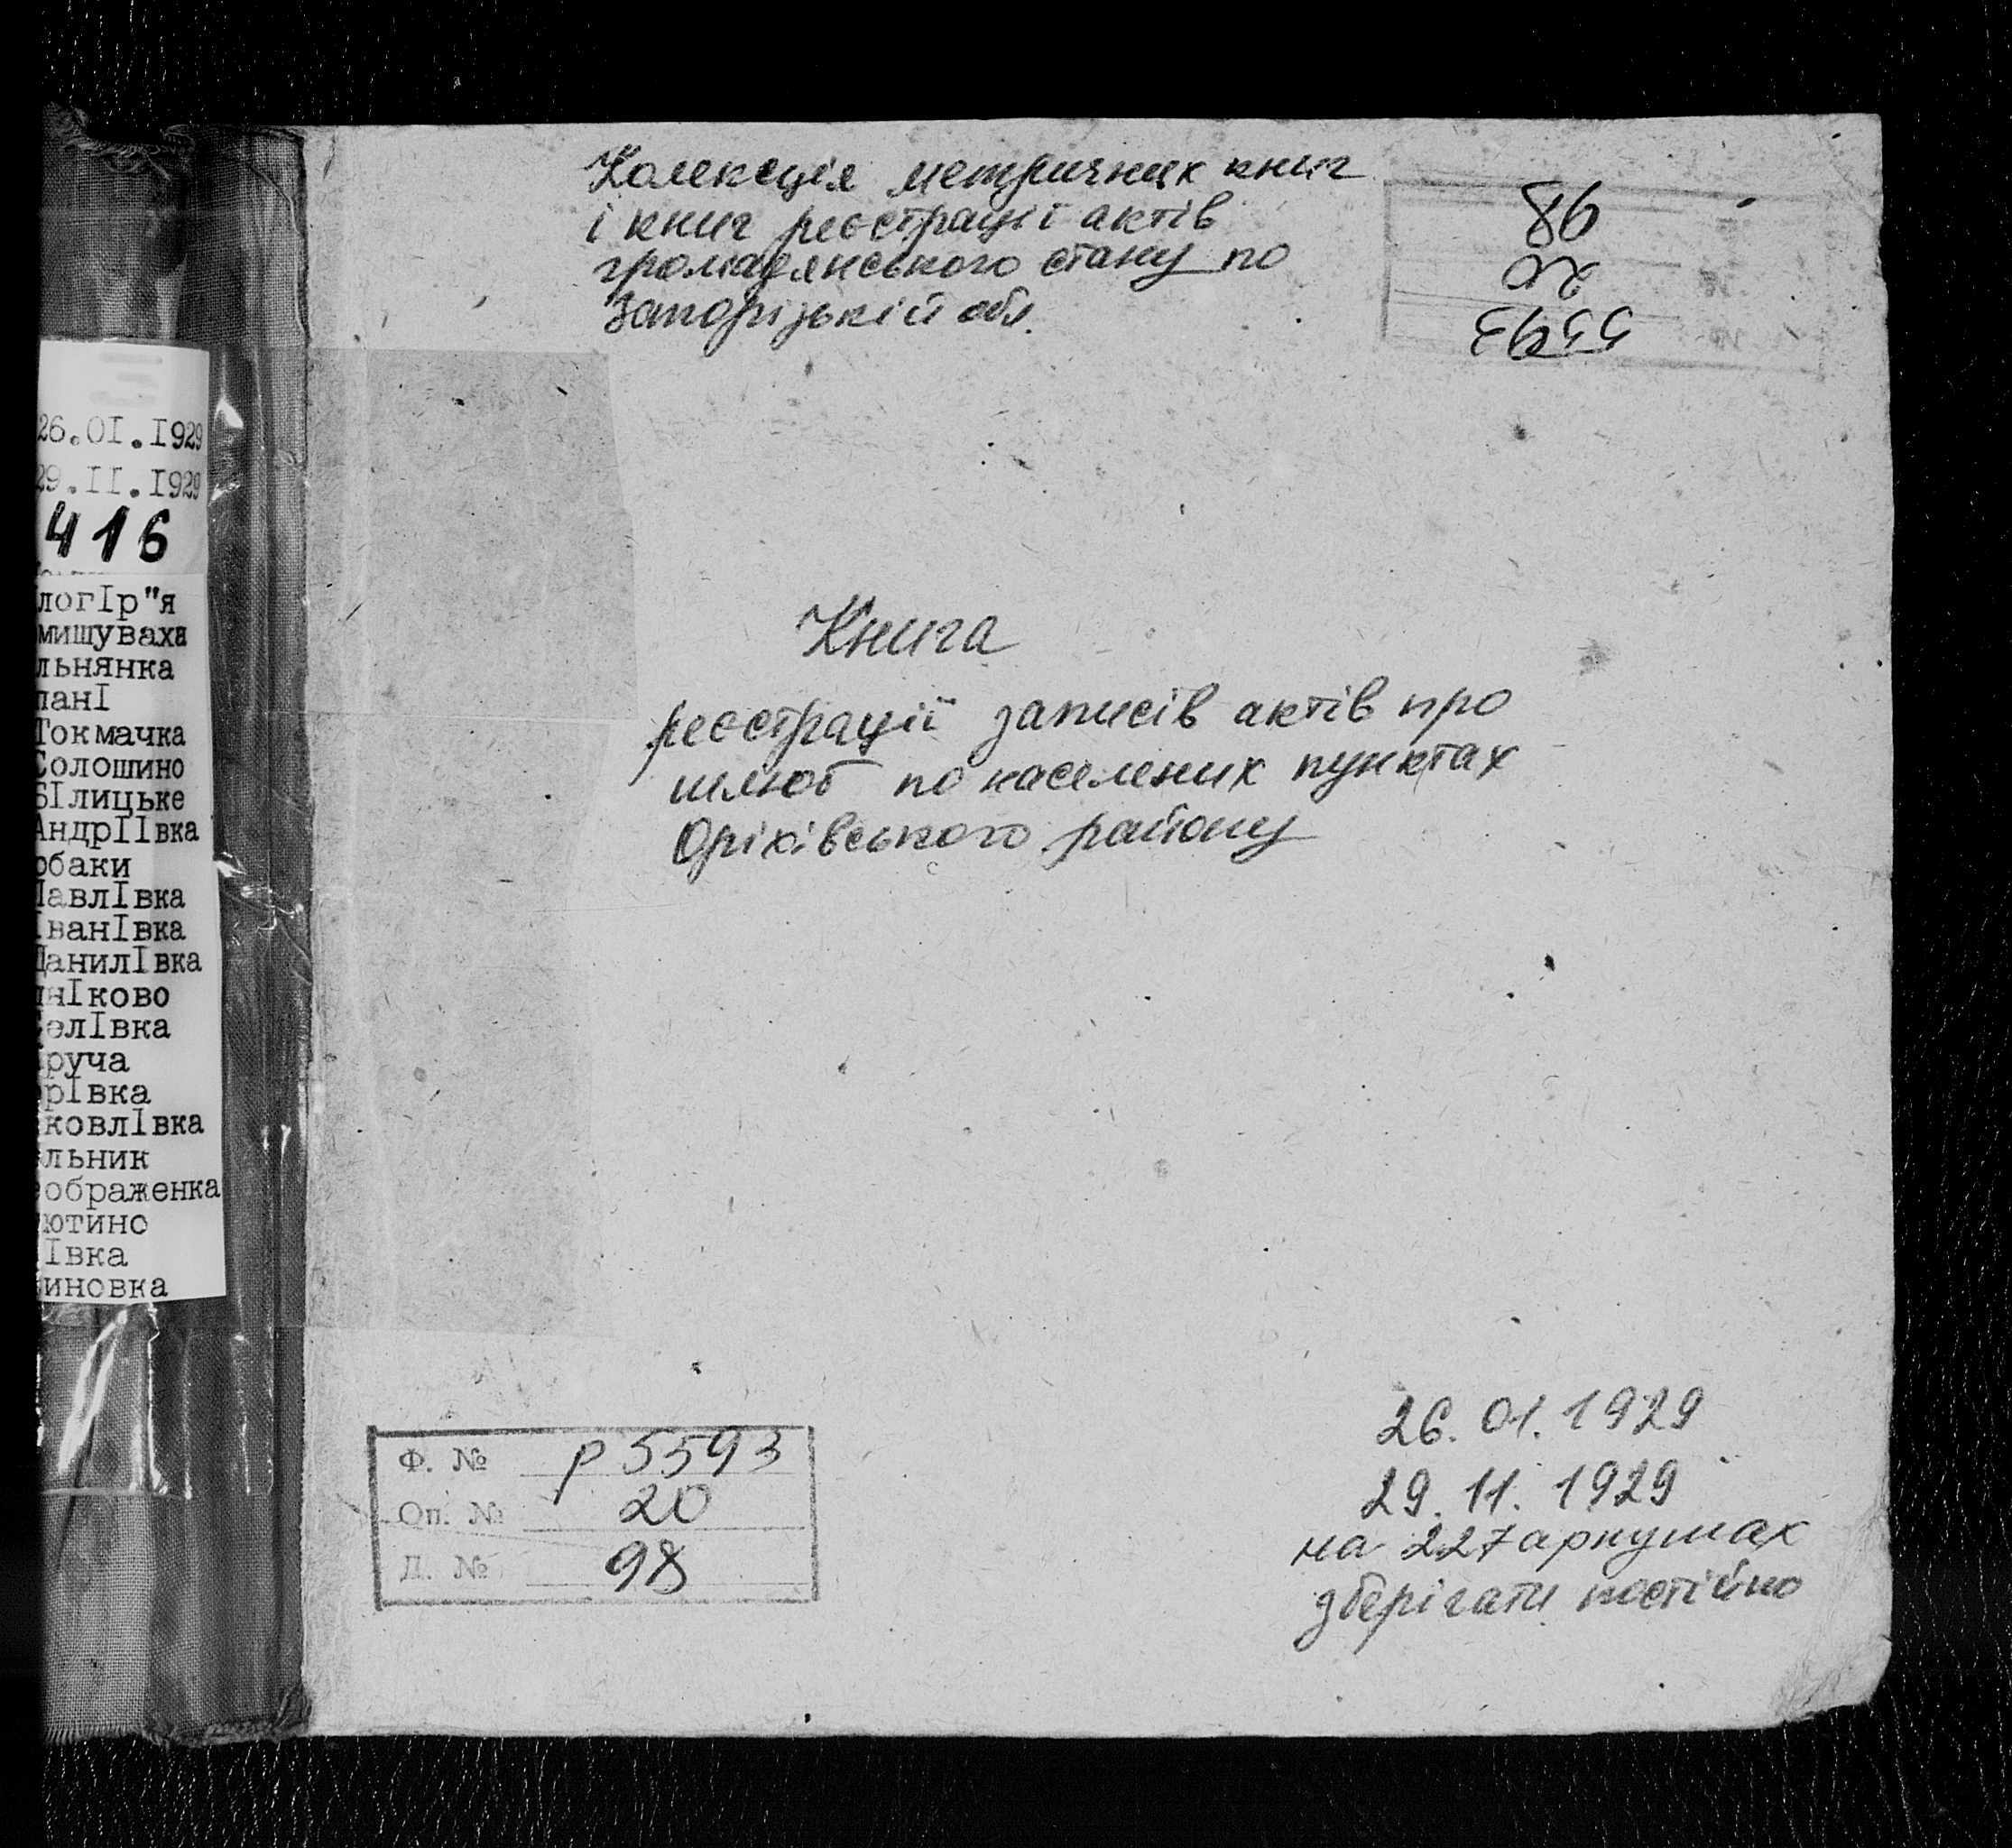 Колекція метричних книг
і книг реєстрації актів
громадянського стану по
Запорізькій обл.
98
20
5593
26.01.1929
29.11.1929
416
логір"я
мишуваха
льнянка
пані
Токмачка
Солошино
Білицьке
Андріївка
обаки
Павлівка
Іванівка
Данилівка
ніково
елівка
руча
рівка
ковлівка
льник
ображенка
ютино
івка
иновка
Книга
реєстрації записів актів про
шлюб по населених пунктах
Оріхівського району
Ф. № р 5593
Оп. № 20
Д. № 98
26.01.1929
29.11.1929
на 227 аркушах
зберігати постійно